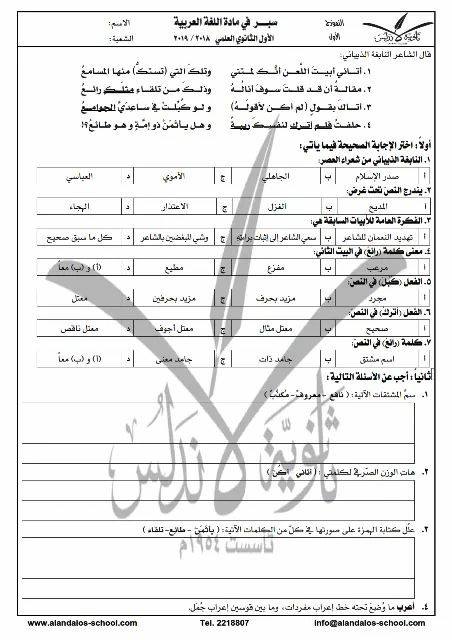 النموذج
الأول
سبـر في مادة اللغة العربية
الأول الثانوي العلمي ٢٠١٨ / ٢٠١٩
الاسم:
الشعبة:
ثانوية الأندلس
قال الشاعر النابغة الذبياني:
١. أتاني أبيتَ اللّعنَ أنّك لمتني وتلك التي (تستكُّ) منها المسامعُ
٢. مقالةُ أن قد قلتَ سوفَ أنالُهُ وذلك من تلقاءِ مثلكَ رائعُ
٣. أتاكَ بقولٍ (لم أكن لأقولَهُ) ولو كُبِّلَتْ في ساعديَّ الجوامعُ
٤. حلفتُ فلم أترك لنفسكَ ريبةً وهل يأثمَنْ ذو إمَّةٍ وهو طائعُ؟!
أولاً: اختر الإجابة الصحيحة فيما يأتي:
١. النابغة الذبياني من شعراء العصر:
أ صدر الإسلام ب الجاهلي ج الأموي د العباسي
٢. يندرج النصّ تحت غرض:
أ المديح ب الغزل ج الاعتذار د الهجاء
٣. الفكرة العامة للأبيات السابقة هي:
أ تهديد النعمان للشاعر ب سعي الشاعر إلى إثبات براءته ج وشي المبغضين بالشاعر د كل ما سبق صحيح
٤. معنى كلمة (رائع) في البيت الثاني:
أ مرعب ب مفزع ج مطيع د (أ) و (ب) معاً
٥. الفعل (كُبّل) في النصّ:
أ مجرد ب مزيد بحرف ج مزيد بحرفين د معتل
٦. الفعل (أترك) في النصّ:
أ صحيح ب معتل مثال ج معتل أجوف د معتل ناقص
٧. كلمة (رائع) في النصّ:
أ اسم مشتق ب جامد ذات ج جامد معنى د (أ) و (ب) معاً
ثانياً: أجب عن الأسئلة التالية:
١. سمِّ المشتقات الآتية: ( نافع - معروف - مُكتَب )
٢. هات الوزن الصّرفيّ لكلمتي : ( أتاني أكُنْ )
٣. علّل كتابة الهمزة على صورتها في كلّ من الكلمات الآتية: ( يأثمَنْ - طائع - تلقاء )
٤. أعرب ما وُضعَ تحته خط إعراب مفردات، وما بين قوسين إعراب جُمَل.
تأسست ١٩٥٤م
www.alandalos-school.com Tel. 2218807 info@alandalos-school.com